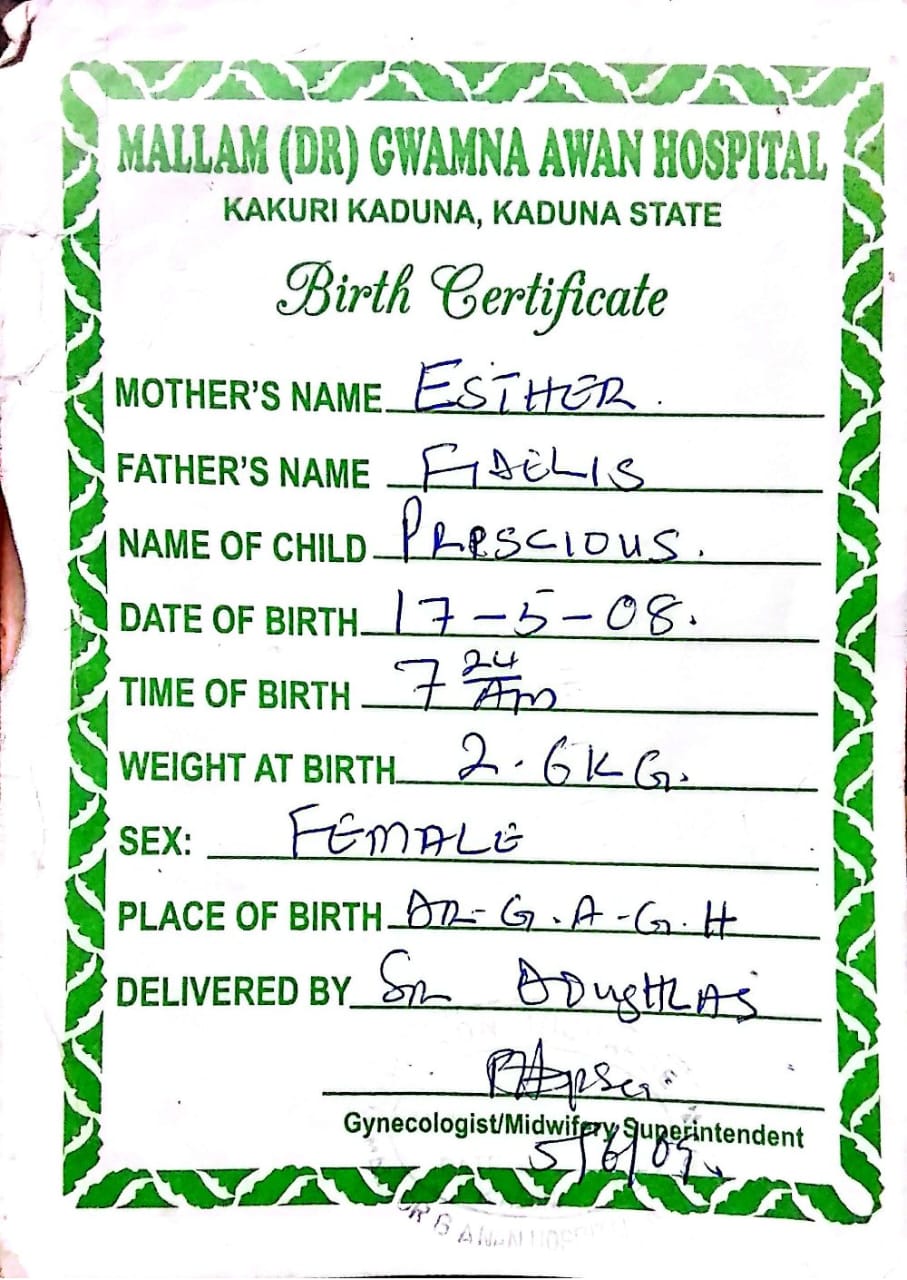 MALLAM (DR) GWAMNA AWAN HOSPITAL
KAKURI KADUNA, KADUNA STATE
Birth Certificate
MOTHER'S NAME ESTHER.
FATHER'S NAME FIDELIS
NAME OF CHILD PRESCIOUS.
DATE OF BIRTH 17-5-08.
TIME OF BIRTH 7 24 Am
WEIGHT AT BIRTH 2.6KG.
SEX: FEMALE
PLACE OF BIRTH DR-G.A-G.H
DELIVERED BY SR
Gynecologist/Midwifery Superintendent
5/6/09